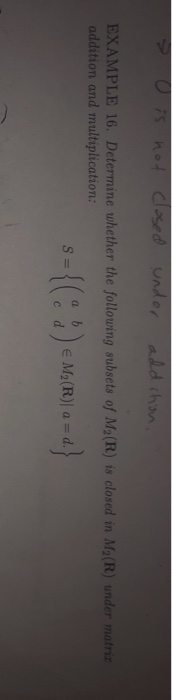 ⇒ U is not Closed under addition.
EXAMPLE 16. Determine whether the following subsets of M₂(R) is closed in M₂(R) under matrix
addition and multiplication:
S = { ( a b
c d ) ∈ M₂(R)| a = d. }